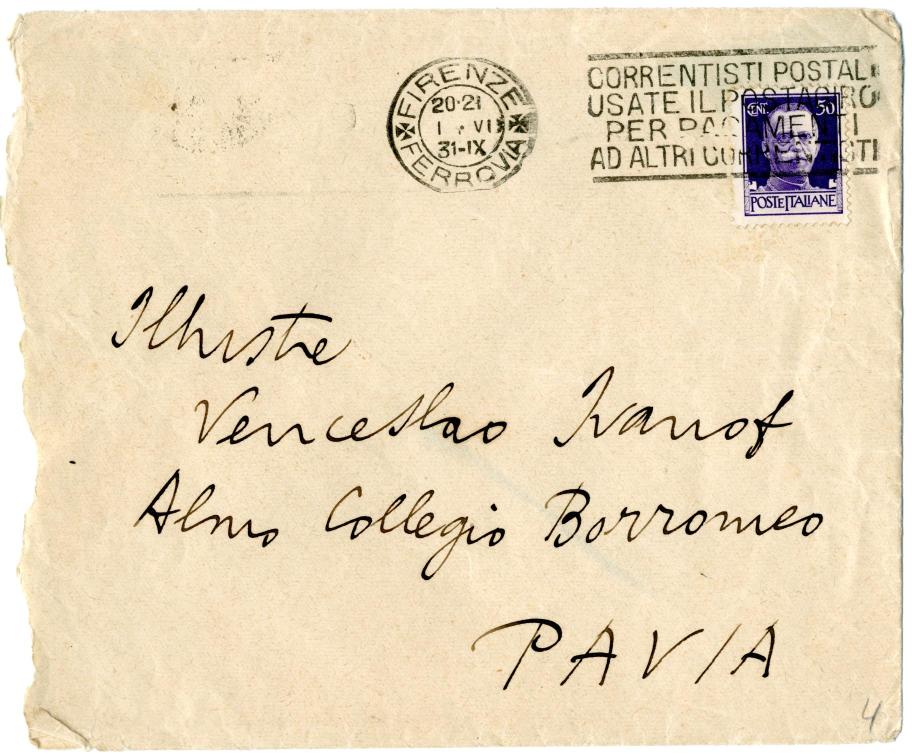 FIRENZE
20-21
1 VI
31-IX
FERROVIA
CORRENTISTI POSTALI
USATE IL POSTAGIRO
PER PAGAMENTI
AD ALTRI CORRENTISTI
CENT. 50
POSTE ITALIANE
Illustre
Venceslao Ivanof
Almo Collegio Borromeo
PAVIA
4